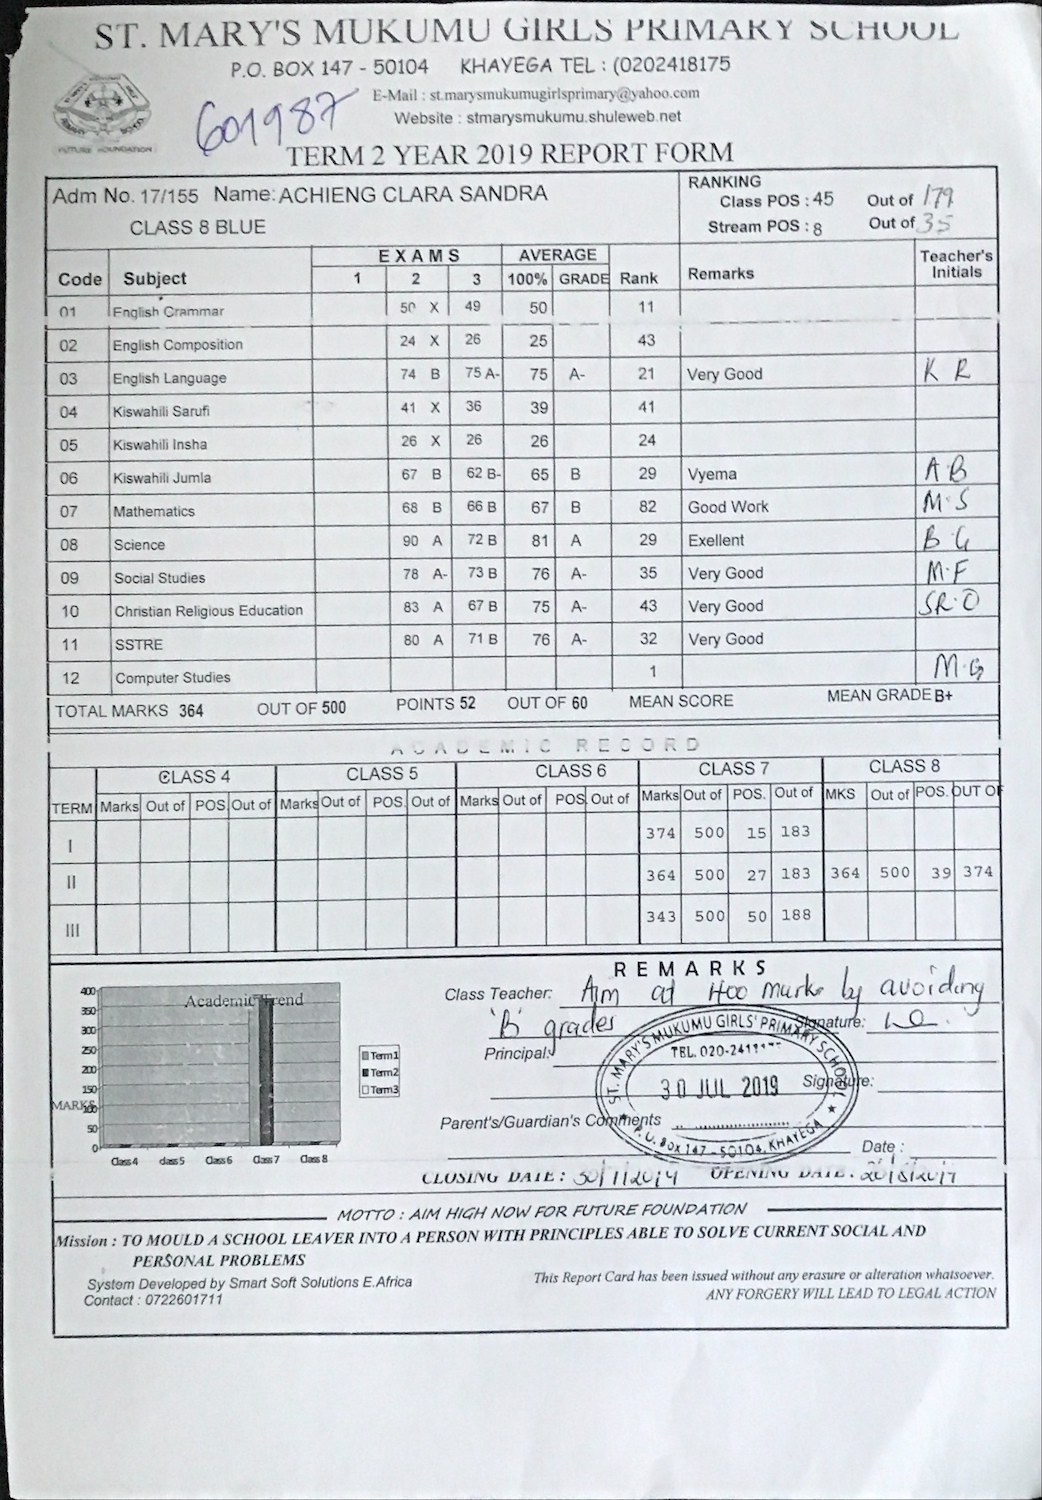 ST. MARY'S MUKUMU GIRLS PRIMARY SCHOOL
P.O. BOX 147 - 50104 KHAYEGA TEL : (0202418175
E-Mail : st.marysmukumugirlsprimary@yahoo.com
Website : stmarysmukumu.shuleweb.net
601987
FUTURE FOUNDATION
TERM 2 YEAR 2019 REPORT FORM
Adm No. 17/155 Name: ACHIENG CLARA SANDRA
CLASS 8 BLUE
RANKING
Class POS : 45 Out of 179
Stream POS : 8 Out of 35
Code Subject EXAMS AVERAGE Rank Remarks Teacher's Initials
1 2 3 100% GRADE
01 English Grammar 50 X 49 50 11
02 English Composition 24 X 26 25 43
03 English Language 74 B 75 A- 75 A- 21 Very Good K R
04 Kiswahili Sarufi 41 X 36 39 41
05 Kiswahili Insha 26 X 26 26 24
06 Kiswahili Jumla 67 B 62 B- 65 B 29 Vyema A B
07 Mathematics 68 B 66 B 67 B 82 Good Work M.S
08 Science 90 A 72 B 81 A 29 Exellent B.G
09 Social Studies 78 A- 73 B 76 A- 35 Very Good M.F
10 Christian Religious Education 83 A 67 B 75 A- 43 Very Good SR.O
11 SSTRE 80 A 71 B 76 A- 32 Very Good
12 Computer Studies 1 M.G
TOTAL MARKS 364 OUT OF 500 POINTS 52 OUT OF 60 MEAN SCORE MEAN GRADE B+
ACADEMIC RECORD
CLASS 4 CLASS 5 CLASS 6 CLASS 7 CLASS 8
TERM Marks Out of POS. Out of Marks Out of POS. Out of Marks Out of POS. Out of Marks Out of POS. Out of MKS Out of POS. OUT OF
I 374 500 15 183
II 364 500 27 183 364 500 39 374
III 343 500 50 188
Academic Trend
400
350
300
250
200
150
100
50
0
MARKS
Class 4 class 5 Class 6 Class 7 Class 8
Term1
Term2
Term3
REMARKS
Class Teacher: Aim at 400 marks by avoiding
'B' grades Signature:
Principal:
Signature:
Parent's/Guardian's Comments
Date :
ST. MARY'S MUKUMU GIRLS' PRIMARY SCHOOL
TEL. 020-2411
30 JUL 2019
P.O. Box 147 - 50104, KHAYEGA
CLOSING DATE : OPENING DATE :
MOTTO : AIM HIGH NOW FOR FUTURE FOUNDATION
Mission : TO MOULD A SCHOOL LEAVER INTO A PERSON WITH PRINCIPLES ABLE TO SOLVE CURRENT SOCIAL AND
PERSONAL PROBLEMS
System Developed by Smart Soft Solutions E.Africa
Contact : 0722601711
This Report Card has been issued without any erasure or alteration whatsoever.
ANY FORGERY WILL LEAD TO LEGAL ACTION